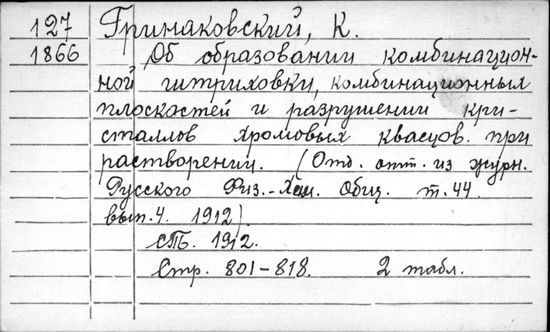 127 Гринаковский, К.
1866 Об образовании комбинацион-
ной штриховки, комбинационных
плоскостей и разрушении кри-
сталлов хромовых квасцов при
растворении. (Отд. отт. из журн.
Русского Физ.-Хим. Общ. т. 44.
вып. 4. 1912)
СПБ. 1912.
Стр. 801-818. 2 табл.